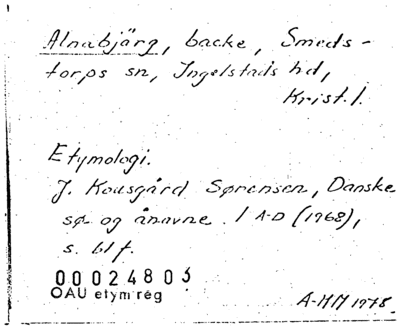 Alnabjärg, backe, Smeds-
torps sn, Ingelstads hd,
Krist. l.
Etymologi.
J. Kousgård Sørensen, Danske
sø og ånavne. 1 A-D (1968),
s. 61 f.
00024803
OAU etym reg
A-MM 1978.